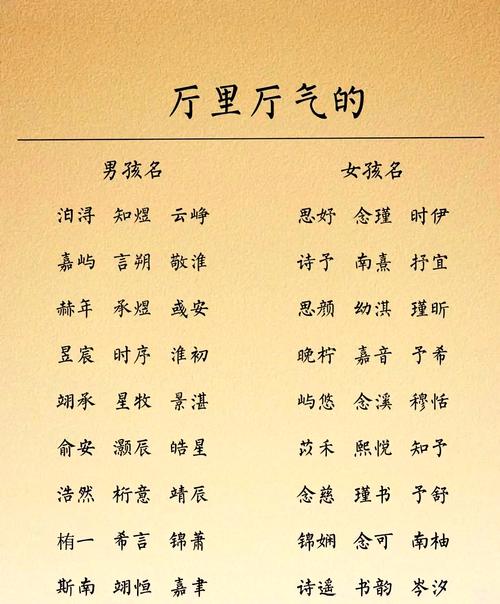 厅里厅气的
男孩名 女孩名
泊浔 知煜 云峥 思妤 念瑾 时伊
嘉屿 言朔 敬淮 诗予 南熹 抒宜
赫年 承煜 彧安 思颜 幼淇 瑾昕
昱宸 时序 淮初 晚柠 嘉音 予希
翊承 星牧 景湛 屿悠 念溪 穆恬
俞安 灏辰 皓星 苡禾 熙悦 知予
浩然 析意 靖辰 念慈 瑾书 予舒
栯一 希言 锦萧 锦娴 念可 南柚
斯南 翊恒 嘉聿 诗遥 书韵 岑汐